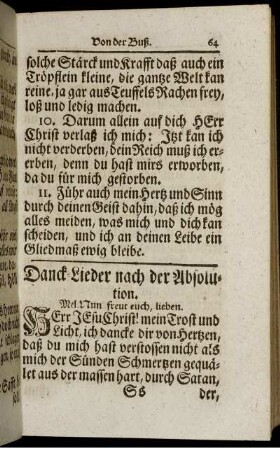 Von der Buß. 64
solche Stärck und Krafft daß auch ein
Tröpflein kleine, die gantze Welt kan
reine, ja gar aus Teuffels Rachen frey,
loß und ledig machen.
10. Darum allein auf dich HErr
Christ verlaß ich mich: Jtzt kan ich
nicht verderben, dein Reich muß ich er-
erben, denn du hast mirs erworben,
da du für mich gestorben.
11. Führ auch mein Hertz und Sinn
durch deinen Geist dahin, daß ich mög
alles meiden, was mich und dich kan
scheiden, und ich an deinen Leibe ein
Gliedmaß ewig bleibe.
Danck-Lieder nach der Absolu-
tion.
Mel. Nun freut euch, lieben.
HErr JEsu Christ! mein Trost und
Licht, ich dancke dir von Hertzen,
daß du mich hast verstossen nicht als
mich der Sünden Schmertzen gequä-
let aus der massen hart, durch Satan,
Ss der,